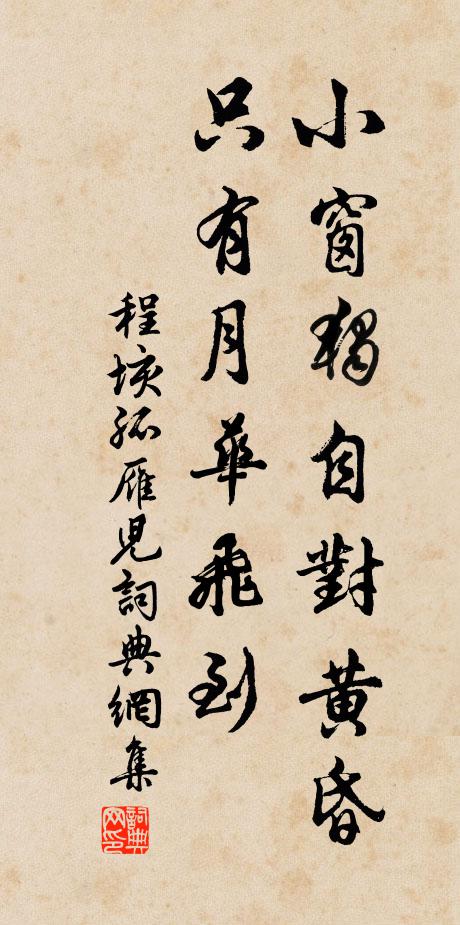 小窗獨自對黃昏
只有月華飛到
程垓孤雁兒詞典網集
詞典网印